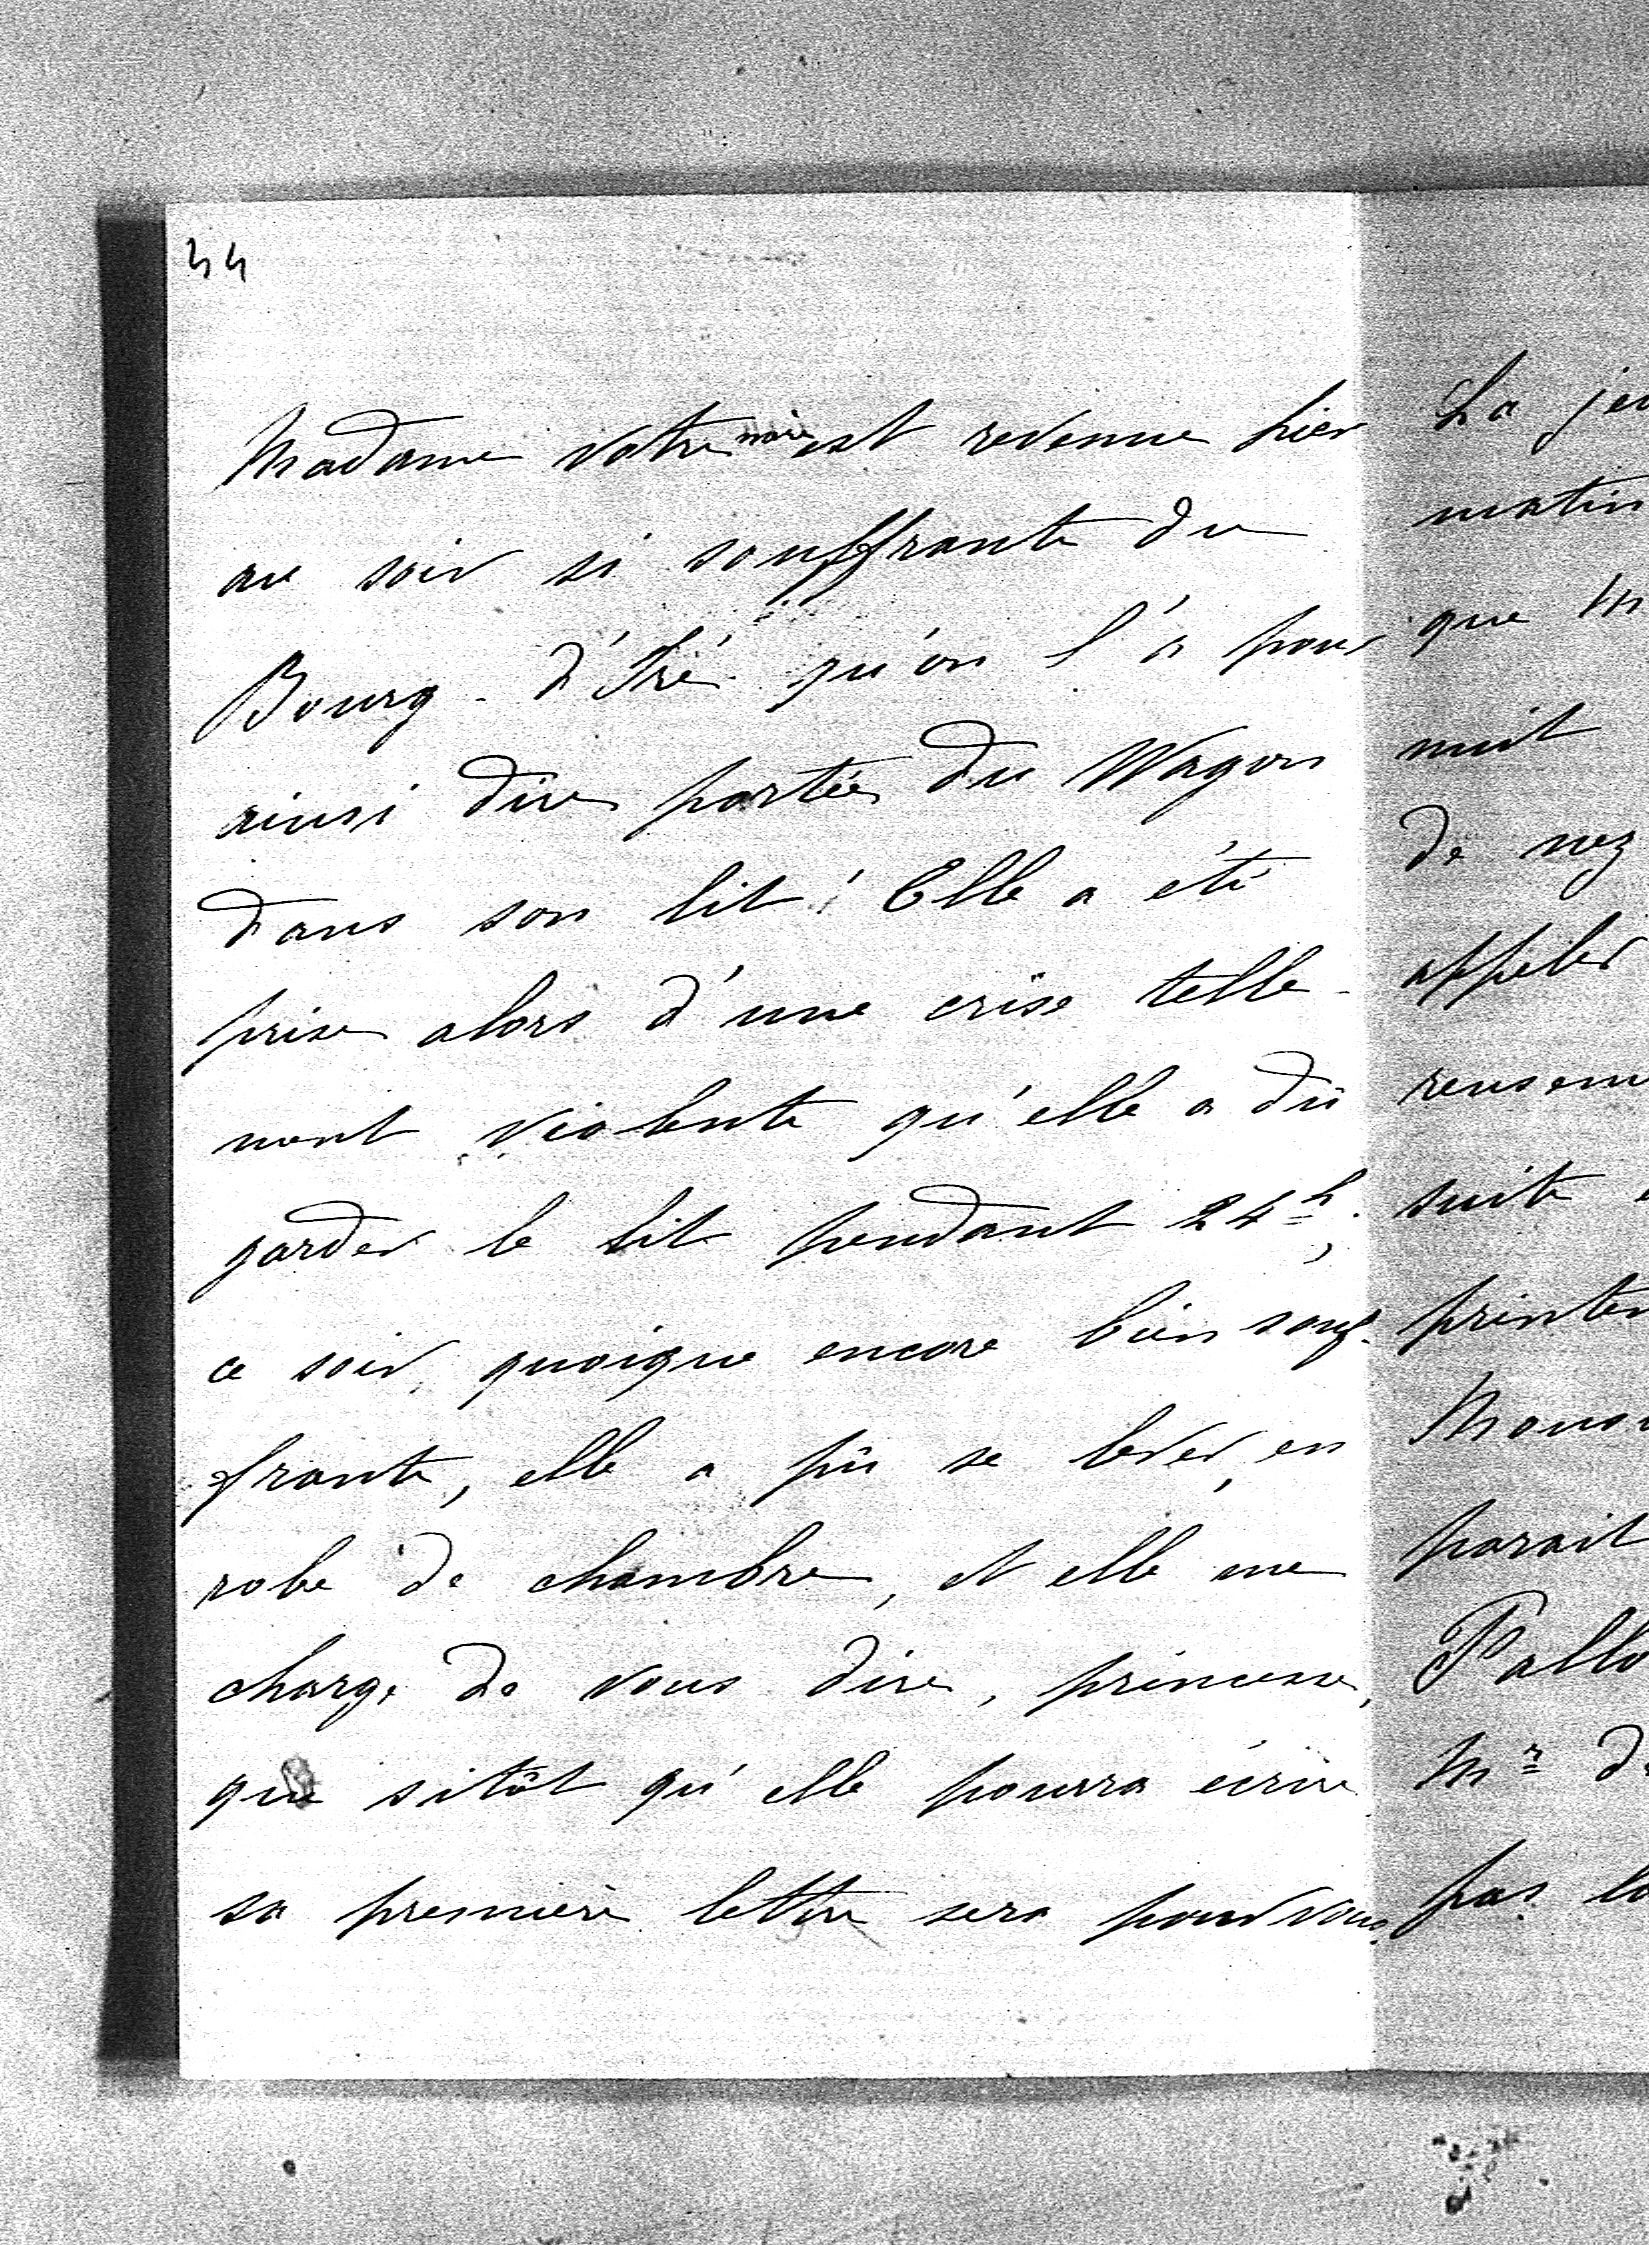 44
Madame votre mère est revenue hier
au soir si souffrante du
Bourg-d'Iré qu'on l'a pour
ainsi dire portée du Wagon
dans son lit! Elle a été
prise alors d'une crise telle-
ment violente qu'elle a dû
garder le lit pendant 24h;
ce soir, quoique encore bien souf-
frante, elle a pû se lever, en
robe de chambre, et elle me
charge de vous dire, princesse,
que sitôt qu'elle pourra écrire
sa première lettre sera pour vous.
La jeu
matin
que M
nuit
de nez
appeler
reusem
suite
printem
Monsi
parait
Pallo
Mr de
pas la